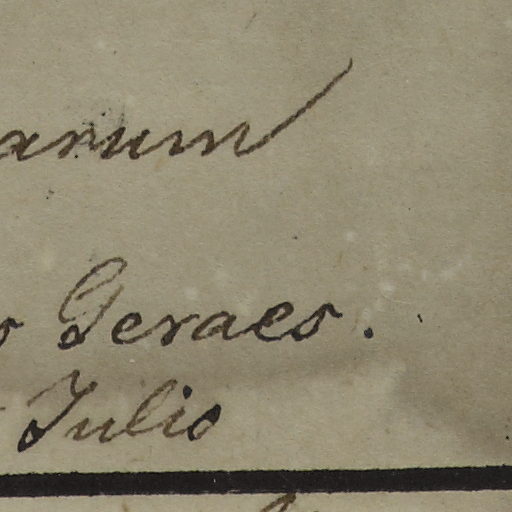 arum
s Geraes.
Julio